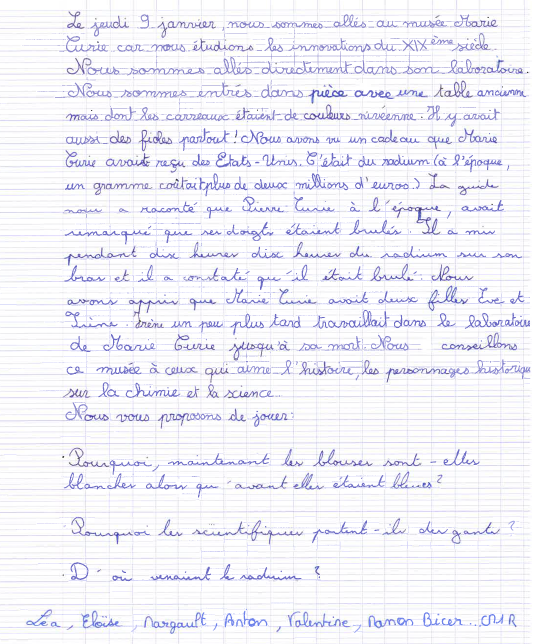 Le jeudi 9 janvier, nous sommes allés au musée Marie
Curie car nous étudions les innovations du XIXème siècle.
Nous sommes allés directement dans son laboratoire.
Nous sommes entrés dans pièce avec une table ancienne
mais dont les carreaux étaient de couleurs nivéenne. Il y avait
aussi des fioles partout ! Nous avons vu un cadeau que Marie
Curie avait reçu des Etats-Unis. C'était du radium (à l'époque,
un gramme coûtait plus de deux millions d'euros.) La guide
nous a raconté que Pierre Curie à l'époque, avait
remarqué que ses doigts étaient brulés. Il a mis
pendant dix heures dix heures du radium sur son
bras et il a constaté qu'il était brulé. Nous
avons appris que Marie Curie avait deux filles Eve et
Irène. Irène un peu plus tard travaillait dans le laboratoire
de Marie Curie jusqu'à sa mort. Nous conseillons
ce musée à ceux qui aime l'histoire, les personnages historique
sur la chimie et la science.
Nous vous proposons de jouer:
. Pourquoi, maintenant les blouses sont-elles
blanches alors qu'avant elles étaient bleues ?
. Pourquoi les scientifiques portent-ils des gants ?
. D'où venaient le radium ?
Léa, Eloïse, Margault, Anton, Valentine, Manon Bicer..CM1R